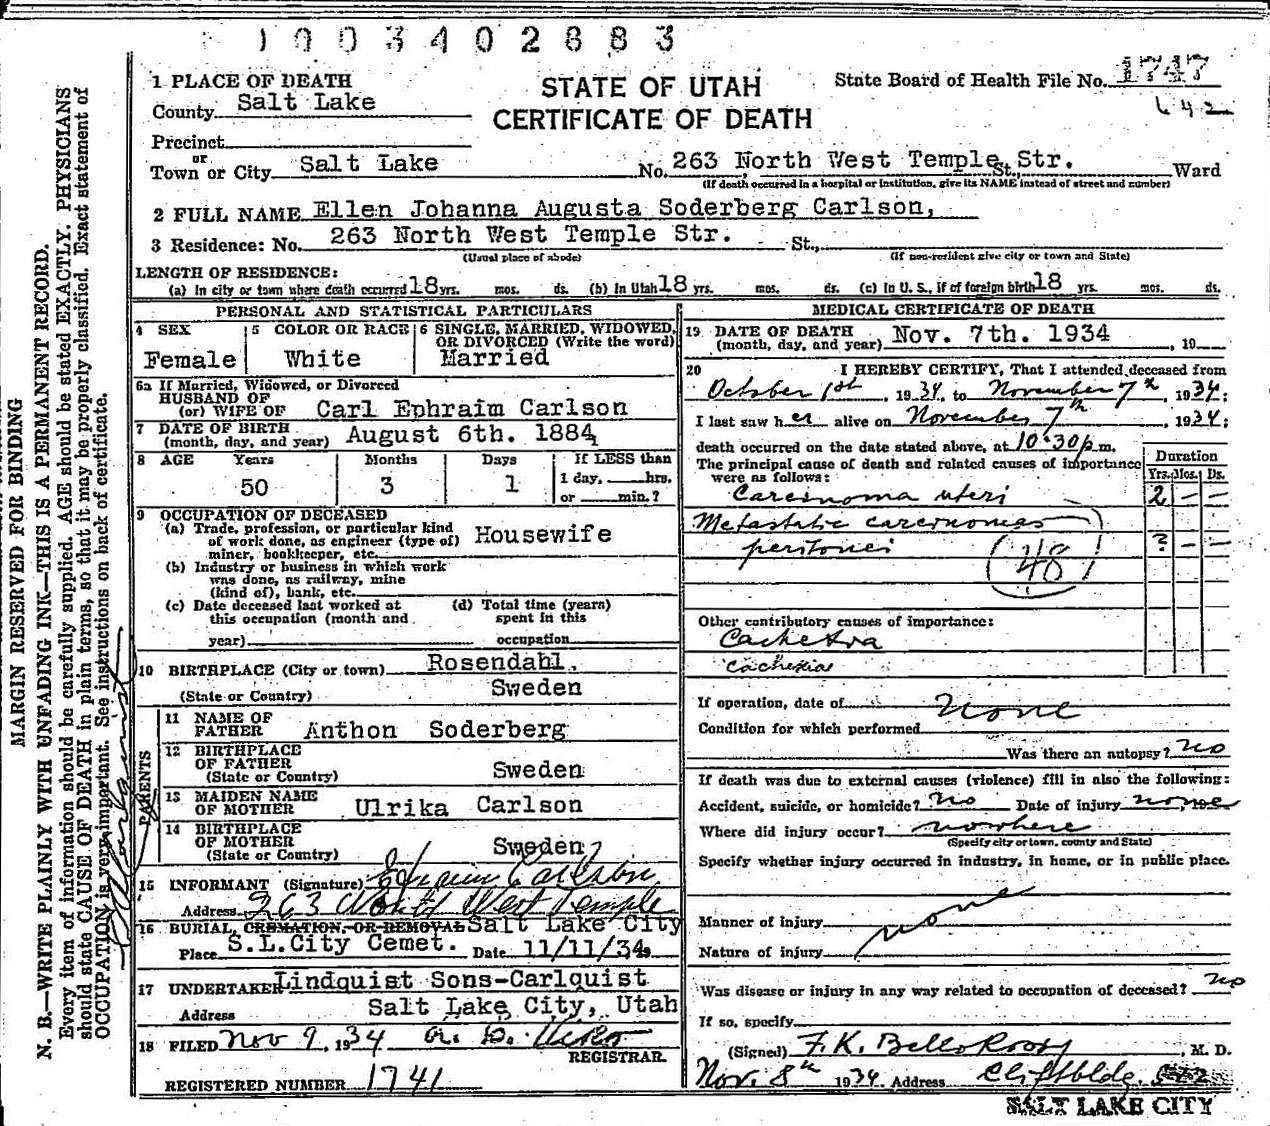 1003402883
1 PLACE OF DEATH
STATE OF UTAH
CERTIFICATE OF DEATH
State Board of Health File No. 1747
642
County Salt Lake
Precinct
or
Town or City Salt Lake No. 263 North West Temple Str. St., Ward
(If death occurred in a hospital or institution, give its NAME instead of street and number)
2 FULL NAME Ellen Johanna Augusta Soderberg Carlson,
3 Residence: No. 263 North West Temple Str. St.,
(Usual place of abode) (If non-resident give city or town and State)
LENGTH OF RESIDENCE:
(a) In city or town where death occurred 18 yrs. mos. ds. (b) In Utah 18 yrs. mos. ds. (c) In U. S., if of foreign birth 18 yrs. mos. ds.
PERSONAL AND STATISTICAL PARTICULARS
4 SEX
Female
5 COLOR OR RACE
White
6 SINGLE, MARRIED, WIDOWED,
OR DIVORCED (Write the word)
Married
6a If Married, Widowed, or Divorced
HUSBAND OF
(or) WIFE OF Carl Ephraim Carlson
7 DATE OF BIRTH
(month, day, and year) August 6th. 1884
8 AGE Years Months Days If LESS than
1 day, hrs.
or min.?
50 3 1
9 OCCUPATION OF DECEASED
(a) Trade, profession, or particular kind
of work done, as engineer (type of)
miner, bookkeeper, etc. Housewife
(b) Industry or business in which work
was done, as railway, mine
(kind of), bank, etc.
(c) Date deceased last worked at
this occupation (month and
year)
(d) Total time (years)
spent in this
occupation
10 BIRTHPLACE (City or town) Rosendahl,
(State or Country) Sweden
PARENTS
11 NAME OF
FATHER Anthon Soderberg
12 BIRTHPLACE
OF FATHER
(State or Country) Sweden
13 MAIDEN NAME
OF MOTHER Ulrika Carlson
14 BIRTHPLACE
OF MOTHER
(State or Country) Sweden
15 INFORMANT (Signature) Ephraim Carlson
Address 263 North West Temple
16 BURIAL, CREMATION, OR REMOVAL Salt Lake City
Place S.L.City Cemet. Date 11/11/34
17 UNDERTAKER Lindquist Sons-Carlquist
Address Salt Lake City, Utah
18 FILED Nov 9, 1934
REGISTRAR
REGISTERED NUMBER 1741
MEDICAL CERTIFICATE OF DEATH
19 DATE OF DEATH
(month, day, and year) Nov. 7th. 1934, 19
20 I HEREBY CERTIFY, That I attended deceased from
October 1st, 1934, to November 7th, 1934;
I last saw her alive on November 7th, 1934;
death occurred on the date stated above, at 10:30 p.m.
The principal cause of death and related causes of importance
were as follows:
Duration
Yrs. Mos. Ds.
Carcinoma uteri 2 — —
Metastatic carcinomas
peritonei ? — —
48
Other contributory causes of importance:
Cachexia
cachexia
If operation, date of None
Condition for which performed
Was there an autopsy? no
If death was due to external causes (violence) fill in also the following:
Accident, suicide, or homicide? no Date of injury none, 19
Where did injury occur? nowhere
(Specify city or town, county and State)
Specify whether injury occurred in industry, in home, or in public place.
Manner of injury none
Nature of injury
Was disease or injury in any way related to occupation of deceased? no
If so, specify
(Signed) F.K. , M. D.
Nov. 8th 1934 Address Cliftbldg.
SALT LAKE CITY
MARGIN RESERVED FOR BINDING
N. B.—WRITE PLAINLY WITH UNFADING INK—THIS IS A PERMANENT RECORD.
Every item of information should be carefully supplied. AGE should be stated EXACTLY. PHYSICIANS
should state CAUSE OF DEATH in plain terms, so that it may be properly classified. Exact statement of
OCCUPATION is very important. See instructions on back of certificate.